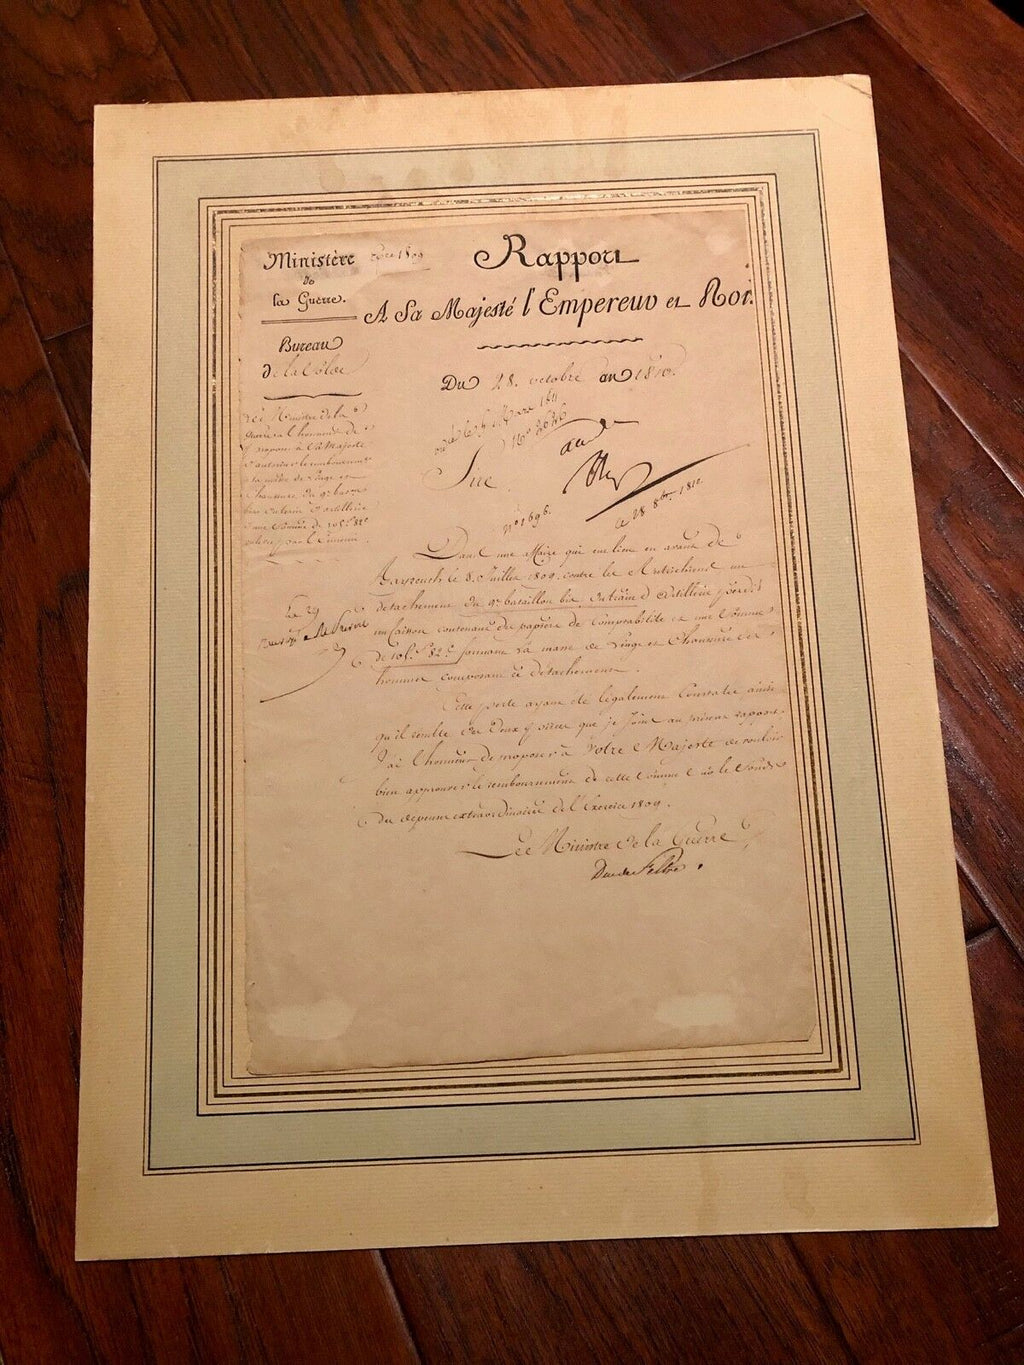 Ministère
de
la Guerre.
Bureau
de la Solde
Rapport
A Sa Majesté l'Empereur et Roi.
Du 28. octobre an 1810.
Le Ministre de la
guerre a l'honneur de
proposer à Sa Majesté
d'autoriser le remboursement
à la masse de linge et
chaussure du 9e. baton
bis du train d'artillerie
d'une somme de 101.f 82c
par l'ennemi.
Sire
No 1696.
le 28 8bre 1810
Dans une affaire qui eut lieu en avant de
le 8. Juillet 1809. contre les Autrichiens un
détachement du 9e bataillon bis du train d'artillerie perdit
un caisson contenant des papiers de comptabilité et une somme
de 101.f 82.c formant la masse de linge et chaussure des
hommes composant ce détachement.
Cette perte ayant été légalement constatée ainsi
qu'il résulte des deux pièces que je joins au présent rapport
J'ai l'honneur de proposer à Votre Majesté de vouloir
bien approuver le remboursement de cette somme sur le fonds
des dépenses extraordinaires de l'Exercice 1809.
Le Ministre de la Guerre
Duc de Feltre.